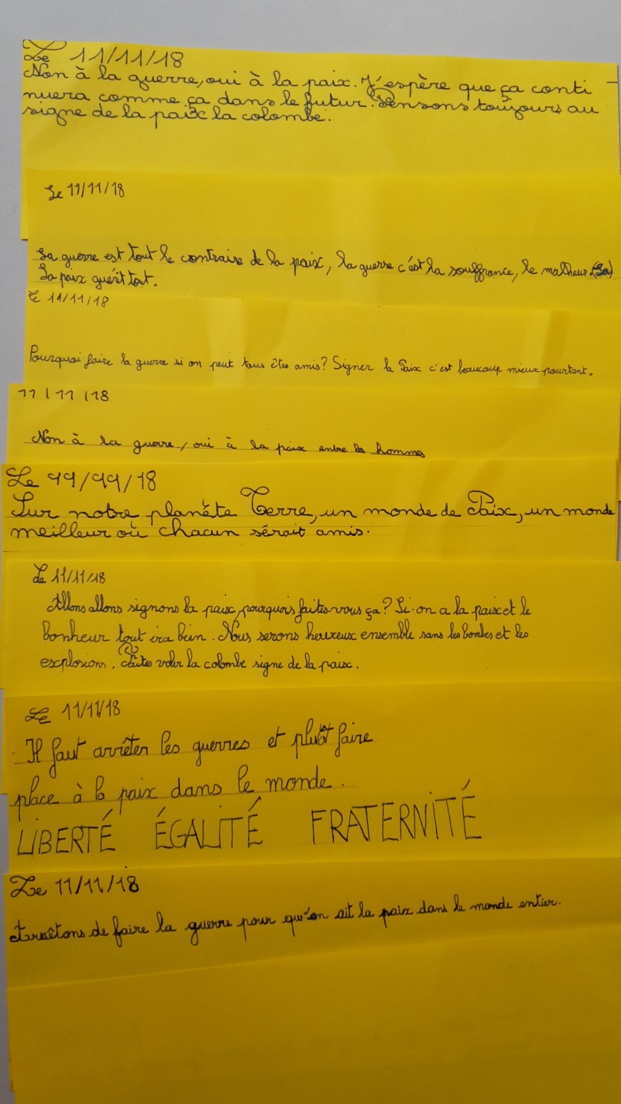 Le 11/11/18
Non à la guerre, oui à la paix. J'espère que ça conti
nuera comme ça dans le futur. Pensons toujours au
signe de la paix la colombe.
Le 11/11/18
La guerre est tout le contraire de la paix, la guerre c'est la souffrance, le malheur. (La)
La paix guérit tout.
Le 11/11/18
Pourquoi faire la guerre si on peut tous êtes amis? Signer la Paix c'est beaucoup mieux pourtant.
11/11/18
Non à la guerre, oui à la paix entre les hommes
Le 11/11/18
Sur notre planéte Terre, un monde de Paix, un monde
meilleur où chacun sérait amis.
Le 11/11/18
Allons allons signons la paix, pourquois faites-vous ça? Si on a la paix et le
bonheur tout ira bein. Nous serons heureux ensemble sans les bombes et les
explosions. Faites voler la colombe signe de la paix.
Le 11/11/18
Il faut arrêter les guerres et plutôt faire
place à la paix dans le monde.
LIBERTÉ ÉGALITÉ FRATERNITÉ
Le 11/11/18
Arrêtons de faire la guerre pour qu'on ait la paix dans le monde entier.